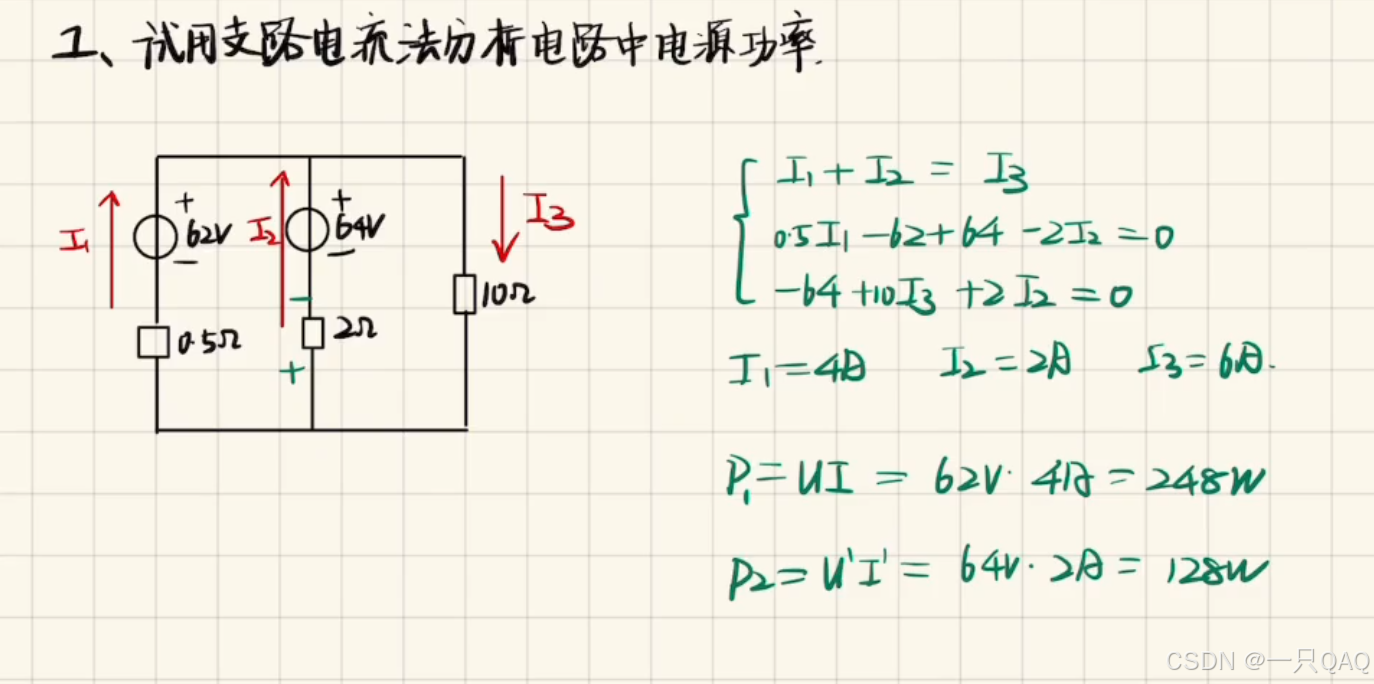 1、试用支路电流法分析电路中电源功率.
I₁ + 62V -
I₂ + 64V -
I₃
10Ω
0.5Ω
- 2Ω +
I₁ + I₂ = I₃
0.5I₁ -62+64 -2I₂ =0
-64 +10I₃ +2I₂ =0
I₁=4A I₂=2A I₃=6A.
P₁= UI = 62V· 4A = 248W
P₂= U'I' = 64V· 2A = 128W
CSDN @一只QAQ